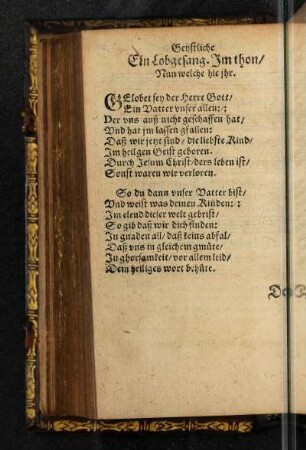 Geystliche
Ein Lobgesang. Im thon/
Nun welche hie jhr.
GElobet sey der Herre Gott/
Ein Vatter vnser allen: /:
Der vns auß nicht geschaffen hat/
Vnd hat jm lassen gfallen:
Daß wir jetzt sind/ die liebste Kind/
Im heilgen Geist geboren.
Durch Jesum Christ/ ders leben ist/
Sonst waren wir verloren.
So du dann vnser Vatter bist/
Vnd weist was deinen Kinden: /:
Im elend dieser welt gebrist/
So gib daß wir dich finden:
In gnaden all/ daß keins abfal/
Daß vns in gleichem gmüte/
In ghorsamkeit/ vor allem leid/
Dein heiliges wort behüte.